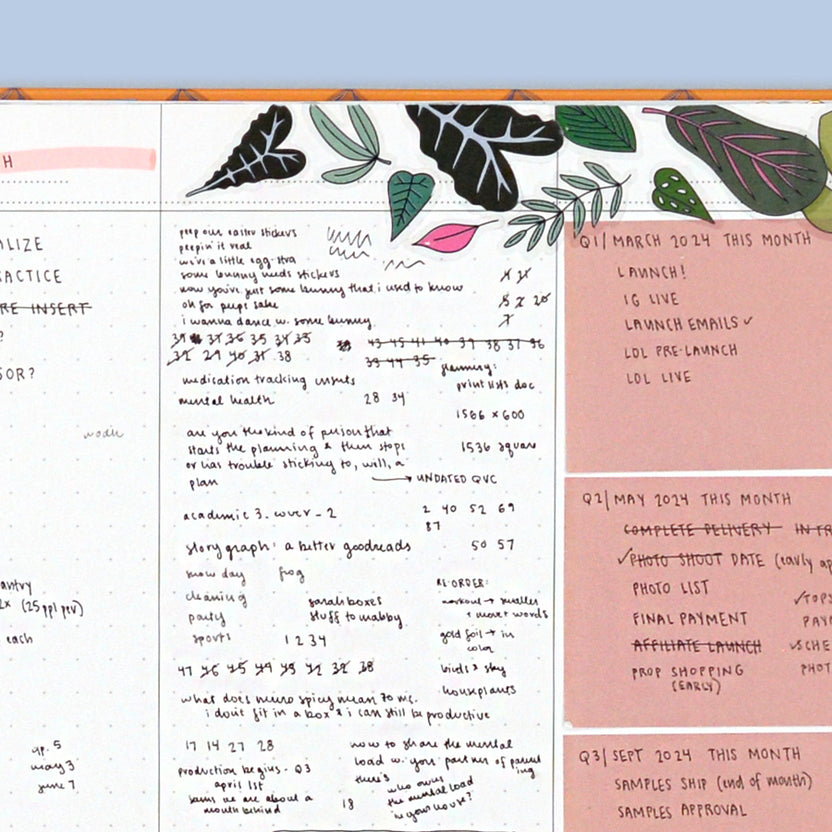 H
ALIZE
ACTICE
RE INSERT
?
SOR?
wodh
antry
2x (25 ppl per)
each
ap. 5
may 3
june 7
peep our easter stickers
peepin' it real
we're a little egg-stra
some bunny needs stickers
now you're just some bunny that i used to know
oh for peeps sake
i wanna dance w. some bunny
37 36 35 34 33
32 29 40 31 38
43 45 41 40 39 38 37 36
39 44 35
planning:
print lists doc
medication tracking inserts
mental health
28 34
1566 x 600
are you the kind of person that
starts the planning & then stops
or has trouble sticking to, will, a
plan
1536 square
UNDATED QVC
academic 3. cover - 2
2 40 52 69
87
story graph: a better goodreads
50 57
snow day frog
cleaning
party
sports
sarah boxes
stuff to mabby
1 2 3 4
RE-ORDER:
workout → smaller
+ more words
gold foil → in
color
birds & sky
houseplants
47 46 45 44 43 42 32 38
what does neuro spicy mean to me.
i don't fit in a box & i can still be productive
17 14 27 28
production begins - Q3
april 1st
seems we are about a
month behind
18
how to share the mental
load w. your partner of parenting
there's
who owns
the mental load
in your house?
Q1/ MARCH 2024 THIS MONTH
LAUNCH!
IG LIVE
LAUNCH EMAILS ✓
LOL PRE-LAUNCH
LOL LIVE
Q2/ MAY 2024 THIS MONTH
COMPLETE DELIVERY IN TR
✓PHOTO SHOOT DATE (early ap
PHOTO LIST
✓TOPS
FINAL PAYMENT PAYM
AFFILIATE LAUNCH ✓SCHE
PROP SHOPPING PHOT
(EARLY)
Q3/ SEPT 2024 THIS MONTH
SAMPLES SHIP (end of month)
SAMPLES APPROVAL